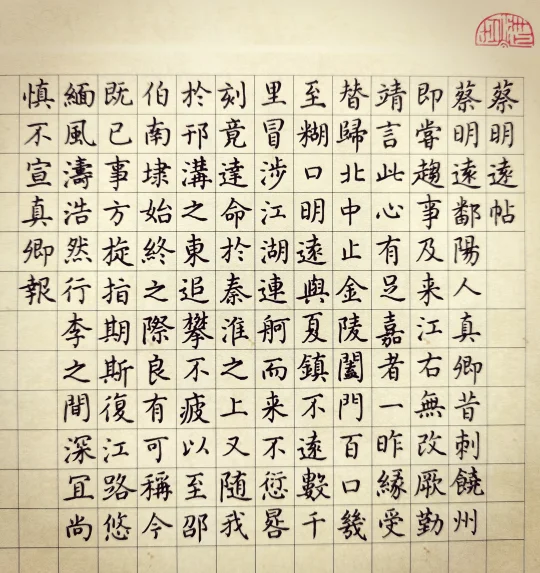 蔡明遠帖
蔡明遠鄱陽人真卿昔刺饒州
即嘗趨事及来江右無改厥勤
靖言此心有足嘉者一昨緣受
替歸北中止金陵闔門百口幾
至糊口明遠與夏鎮不遠數千
里冒涉江湖連舸而来不愆晷
刻竟達命於秦淮之上又随我
於邗溝之東追攀不疲以至邵
伯南埭始終之際良有可稱今
既已事方旋指期斯復江路悠
緬風濤浩然行李之間深冝尚
慎不宣真卿報